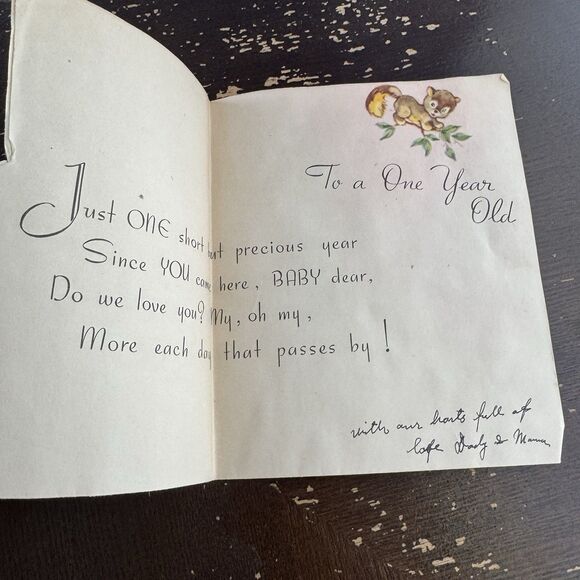 To a One Year
Old
Just ONE short but precious year
Since YOU came here, BABY dear,
Do we love you? My, oh my,
More each day that passes by!
with our harts full of
lofe Dady & Mama